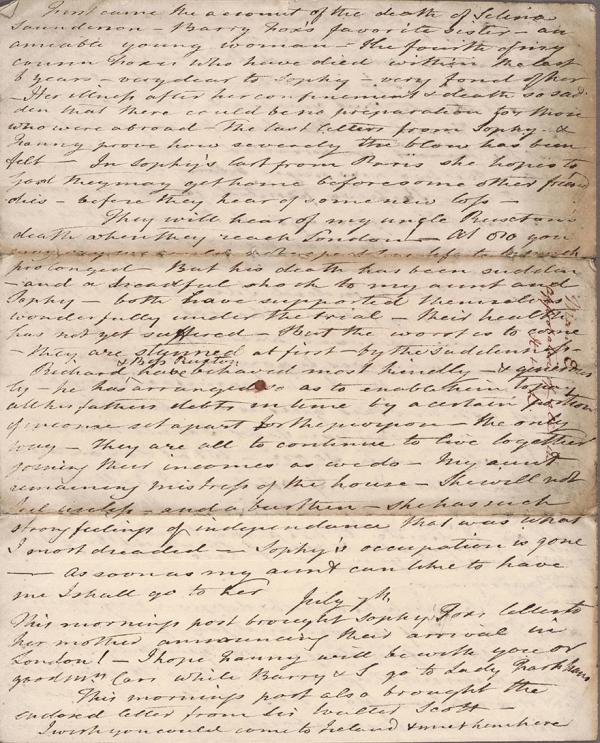 First came the account of the death of Selina
Saunderson – Barry Fox's favorite sister – an
amiable young woman – the fourth of my
cousin Foxes who have died within the last
6 years – very dear to Sophy – very fond of her
– Her illness after her confinement & death so sud
den that there could be no preparation for those
who were abroad – The last letters from Sophy &
Fanny prove how severely the blow has been
felt – In Sophy's last from Paris she hopes to
God they may get home before some other friend
dies – before they hear of some new loss –
They will hear of my uncle Ruxton's
death when they reach London! – At 80 you
prolonged – But his death has been sudden
– and a dreadful shock to my aunt and
Sophy – both have supported themselves
wonderfully under the trial – their health
has not yet suffered – But the worst is to come
– they are stunned at first – by the suddenness
& Bess Ruxton
Richard have behaved most kindly – & generous
ly – he has arranged so as to enable them to pay
all his father's debts in time by a certain portion
of income set apart for the purpose – the only
way – they are all to continue to live together
joining their incomes as we do – My aunt
remaining mistress of the house – She will not
feel useless – and a burthen – she has such
strong feelings of independance that was what
I most dreaded – Sophy's occupation is gone
– As soon as my aunt can like to have
me I shall go to her
July
This mornings post brought Sophy Fox's letter to
her mother announcing their arrival in
London! – I hope Fanny will be with you or
good Mrs Carr while Barry & S. go to Lady
This mornings post also brought the
enclosed letter from Sir Walter Scott –
I wish you could come to Ireland & meet him here